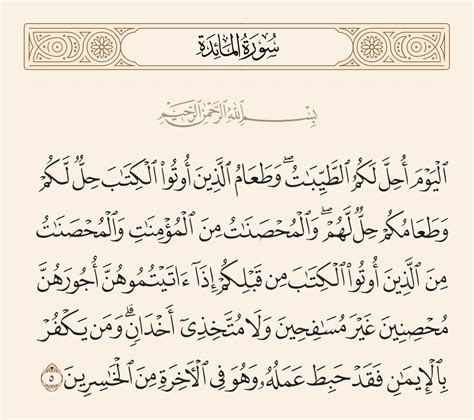 سُورَةُ المَائِدَةِ
بِسْمِ اللَّهِ الرَّحْمَٰنِ الرَّحِيمِ
الْيَوْمَ أُحِلَّ لَكُمُ الطَّيِّبَاتُ ۖ وَطَعَامُ الَّذِينَ أُوتُوا الْكِتَابَ حِلٌّ لَّكُمْ
وَطَعَامُكُمْ حِلٌّ لَّهُمْ ۖ وَالْمُحْصَنَاتُ مِنَ الْمُؤْمِنَاتِ وَالْمُحْصَنَاتُ
مِنَ الَّذِينَ أُوتُوا الْكِتَابَ مِن قَبْلِكُمْ إِذَا ءَاتَيْتُمُوهُنَّ أُجُورَهُنَّ
مُحْصِنِينَ غَيْرَ مُسَافِحِينَ وَلَا مُتَّخِذِي أَخْدَانٍ ۗ وَمَن يَكْفُرْ
بِالْإِيمَانِ فَقَدْ حَبِطَ عَمَلُهُ وَهُوَ فِي الْآخِرَةِ مِنَ الْخَاسِرِينَ ٥